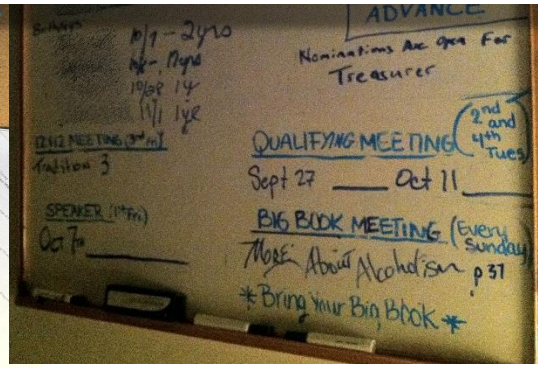 Birthdays
10/7 - 2yrs
17yrs
10/28 1yr
11/1 1yr
12&12 MEETING (3rd Fri)
Tradition 3
SPEAKER (1st Fri)
Oct 7th
ADVANCE
Nominations Are Open For
Treasurer
QUALIFYING MEETING (2nd and 4th Tues)
Sept 27 Oct 11
BIG BOOK MEETING (Every Sunday)
More About Alcoholism p 37
*Bring Your Big Book*